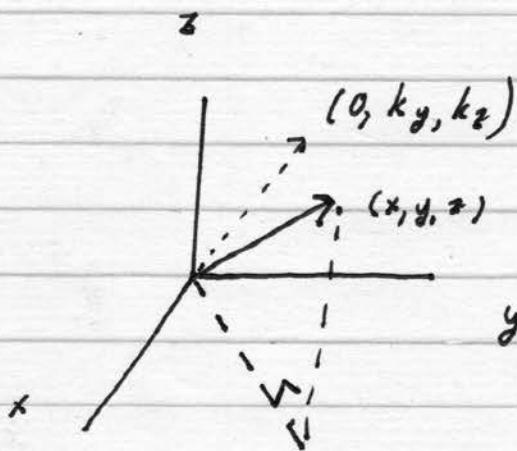 z
(0, ky, kz)
(x, y, z)
y
x